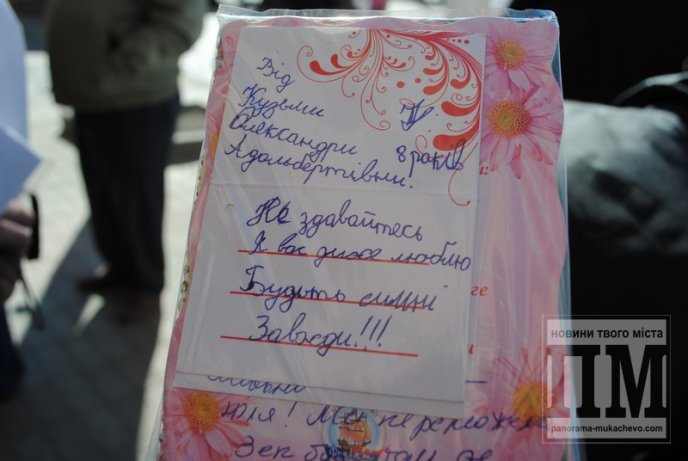 Від
Кузьми
Олександри 8 років
Адольбертівни.
Не здавайтесь
Я вас дуже люблю
Будьть сильні
Завжди!!!
Юля! Ми переможем
НОВИНИ ТВОГО МІСТА
ПМ
panorama-mukachevo.com